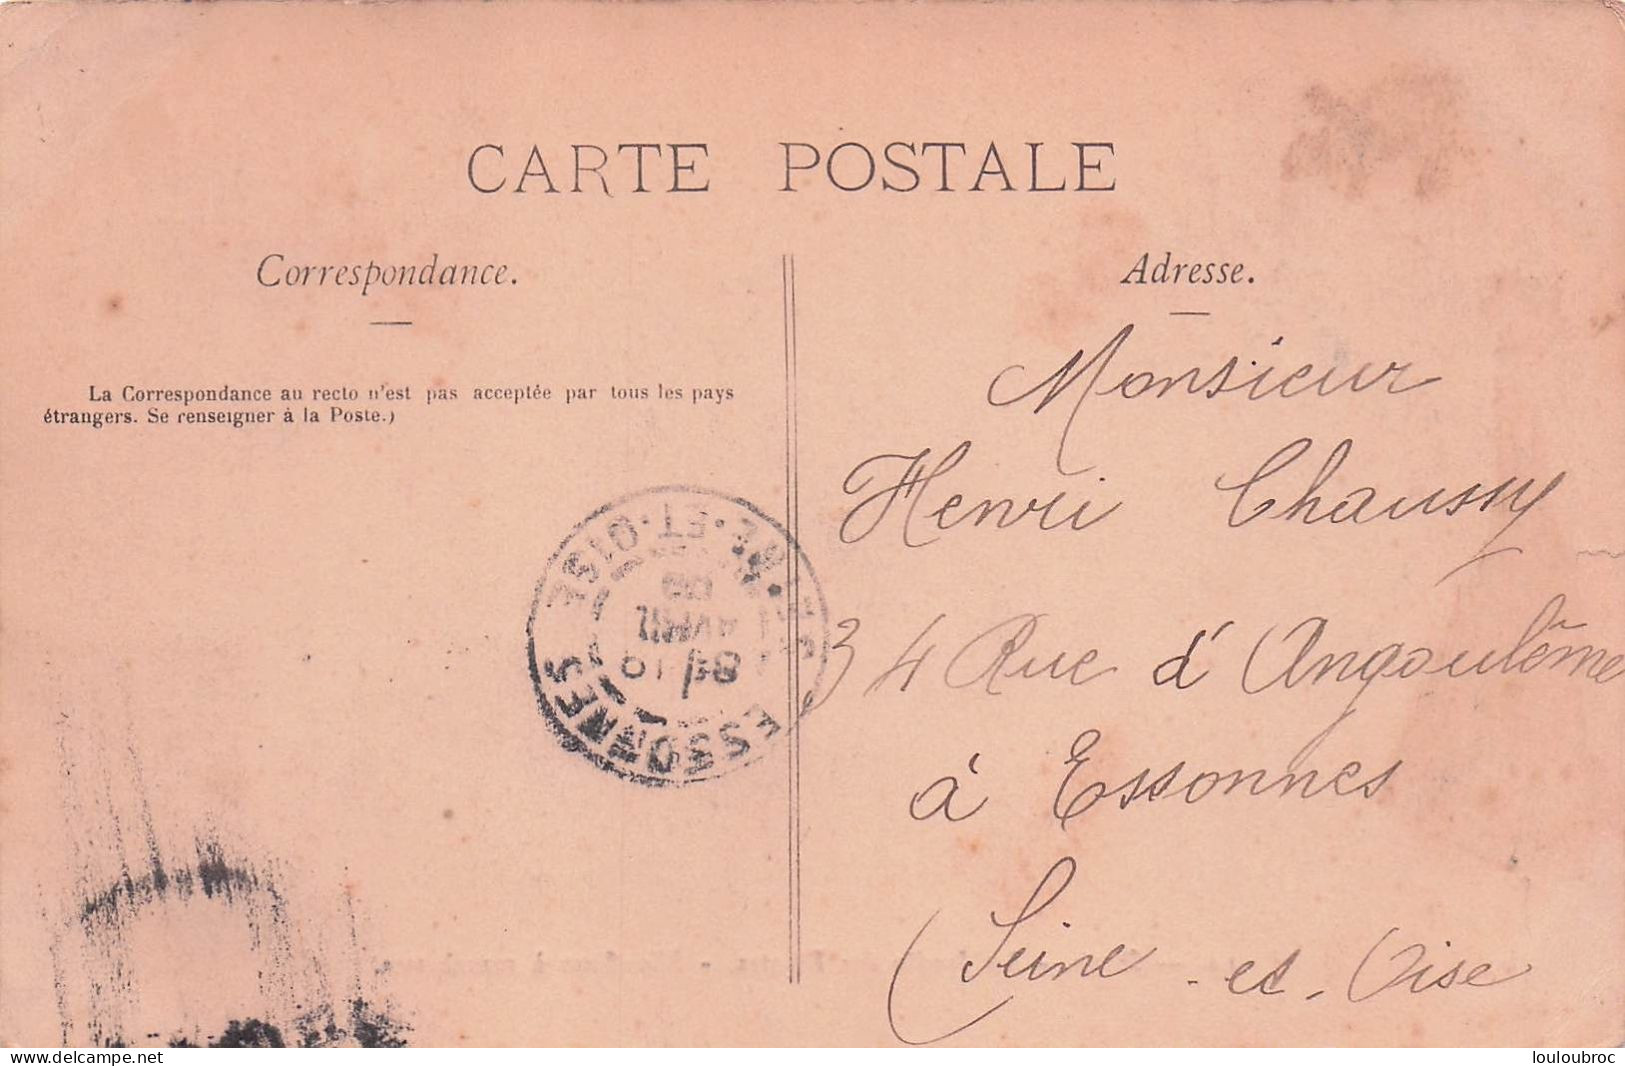 CARTE POSTALE
Correspondance.
La Correspondance au recto n'est pas acceptée par tous les pays
étrangers. Se renseigner à la Poste.)
Adresse.
Monsieur
Henri Chaussy
34 Rue d'Angoulême
à Essonnes
(Seine-et-Oise
ESSONNES
SEINE-ET-OISE
AVRIL
delcampe.net
louloubroc